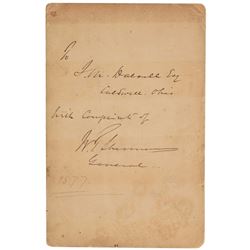 To
J. M. Dalzell Esq
Caldwell. Ohio
with Compliments of
W. T. Sherman
General
1877